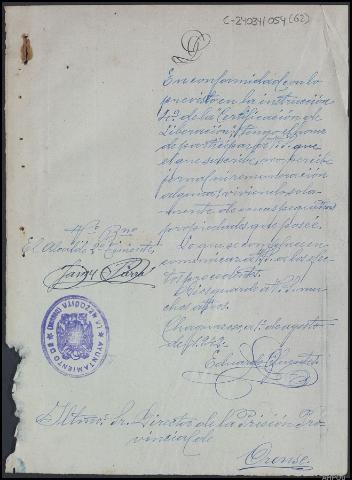 C-24084/054 (62)
En conformidad con lo
previsto en la instrucción
4ª de la Certificación de
Liberación, tengo el honor
de participar a V.I. que
el que suscribe, no percibe
por aquí remuneración
alguna, viviendo sola-
mente de unas pequeñas
propiedades que posee.
Lo que se condigo en
comunicar a V.I. a los efec-
tos procedentes.
Dios guarde a V.I. mu-
chos años.
1º de agosto
de 1.942.
Eduardo
Vº Bno
El Alcalde
AYUNTAMIENTO DE LA MEZQUITA (ORENSE)
Iltmo. Sr. Director de la Prisión Pro-
vincial de
Orense.